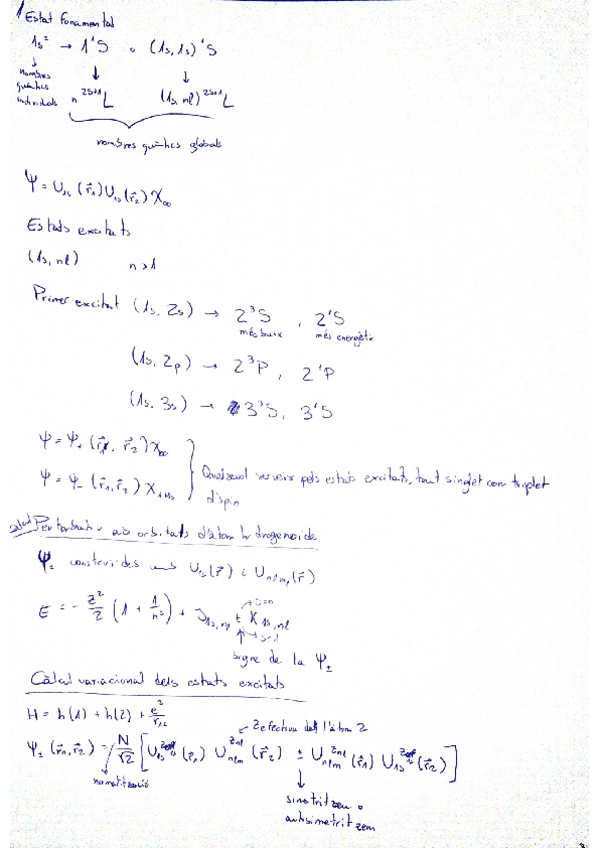 Estat fonamental
1s² → 1¹S o (1s,1s)¹S
↓ ↓ ↓
nombres quàntics individuals n ²ˢ⁺¹L (1s, nl) ²ˢ⁺¹L
nombres quàntics globals
Ψ = U₁ₛ(r⃗₁)U₁ₛ(r⃗₂)χ₀₀
Estats excitats
(1s, nl) n>1
Primer excitat (1s, 2s) → 2³S , 2¹S
més baix més energètic
(1s, 2p) → 2³P , 2¹P
(1s, 3s) → 3³S, 3¹S
Ψ = Ψ₊(r⃗₁, r⃗₂)χ₀₀
Ψ = Ψ₋(r⃗₁, r⃗₂)χ
serveix pels estats excitats, tant singlet com triplet
d'spin
Pertorbatiu orbitals d'àtom hidrogenoide
Ψ± construides amb U₁ₛ(r⃗) i Uₙₗₘₗ(r⃗)
E = -Z²/2 (1 + 1/n²) + J₁ₛ,ₙₗ ± K₁ₛ,ₙₗ
signe de la Ψ±
Càlcul variacional dels estats excitats
H = h(1) + h(2) + e²/r₁₂
Z efectiva de l'àtom 2
Ψ±(r⃗₁,r⃗₂) = N/√2 [U₁ₛ(r⃗₁) Uₙₗₘ^Zₙₗ(r⃗₂) ± Uₙₗₘ^Zₙₗ(r⃗₁) U₁ₛ(r⃗₂)]
normalització
simetritzem o
antisimetritzem